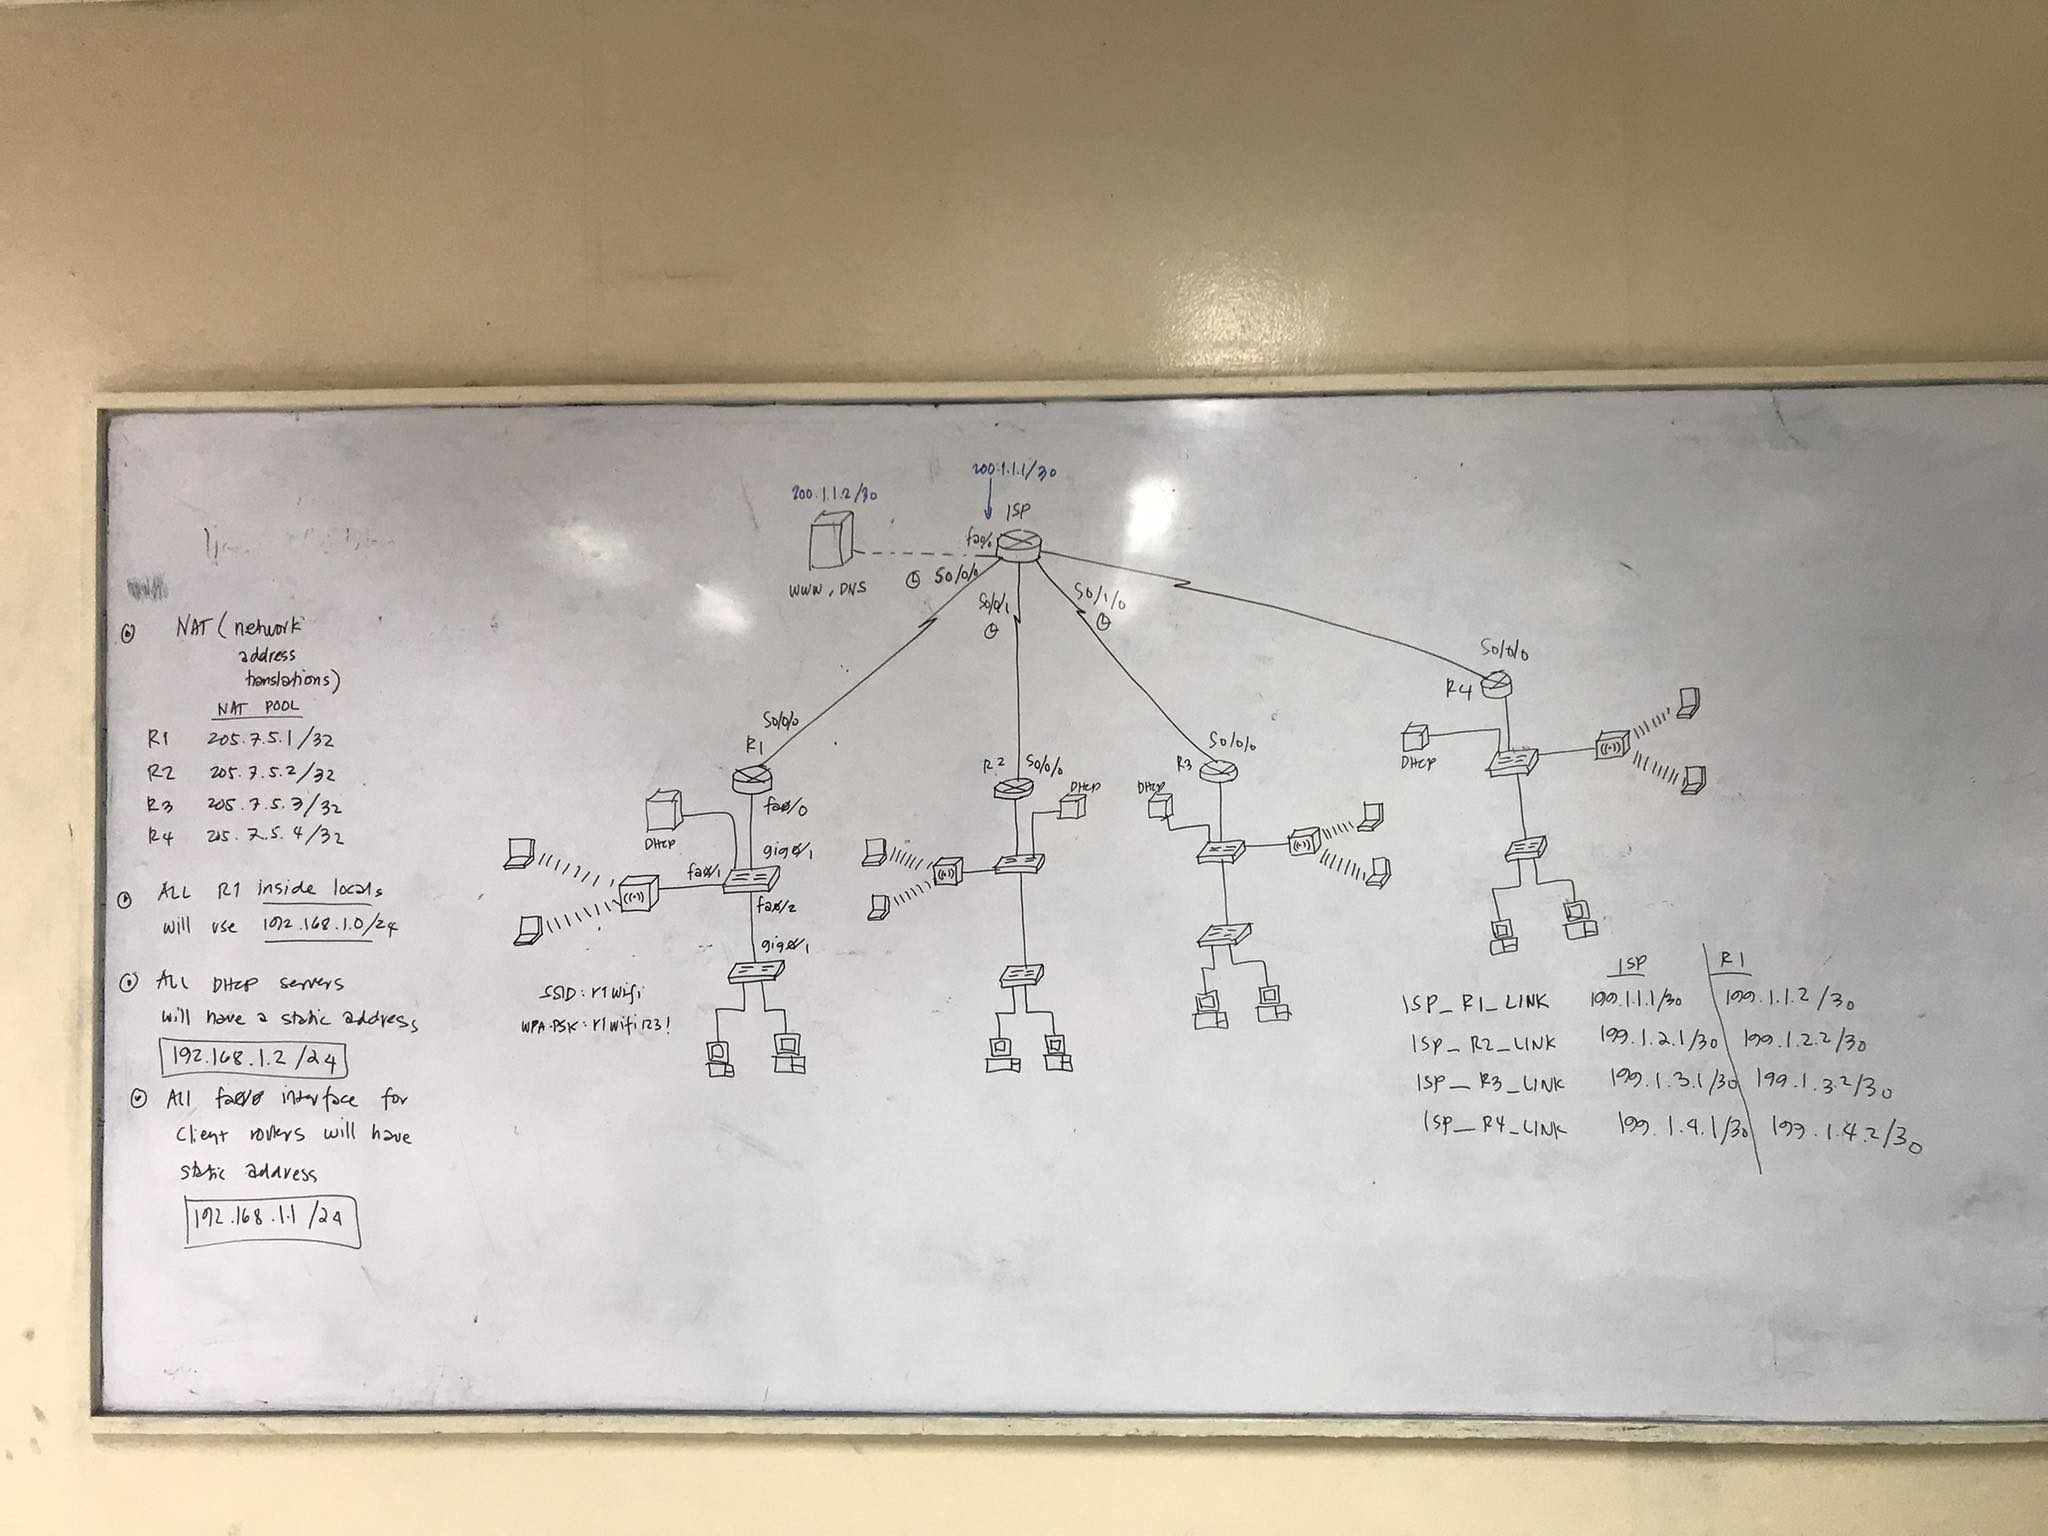 200.1.1.1/30
200.1.1.2/30
ISP
fa0/0
S0/0/0
WWW, DNS
S0/0/1
S0/1/0
NAT (network
address
translations)
NAT POOL
R1 205.7.5.1/32
R2 205.7.5.2/32
R3 205.7.5.3/32
R4 205.7.5.4/32
ALL R1 inside locals
will use 192.168.1.0/24
ALL DHCP servers
will have a static address
192.168.1.2/24
All fa0/0 interface for
client routers will have
static address
192.168.1.1/24
S0/0/0
R1
fa0/0
DHCP
gig0/1
fa0/1
fa0/2
gig0/1
SSID: r1wifi
WPA-PSK: r1wifi123!
R2 S0/0/0
DHCP
S0/0/0
R3
DHCP
S0/0/0
R4
DHCP
ISP R1
ISP_R1_LINK 199.1.1.1/30 199.1.1.2/30
ISP_R2_LINK 199.1.2.1/30 199.1.2.2/30
ISP_R3_LINK 199.1.3.1/30 199.1.3.2/30
ISP_R4_LINK 199.1.4.1/30 199.1.4.2/30